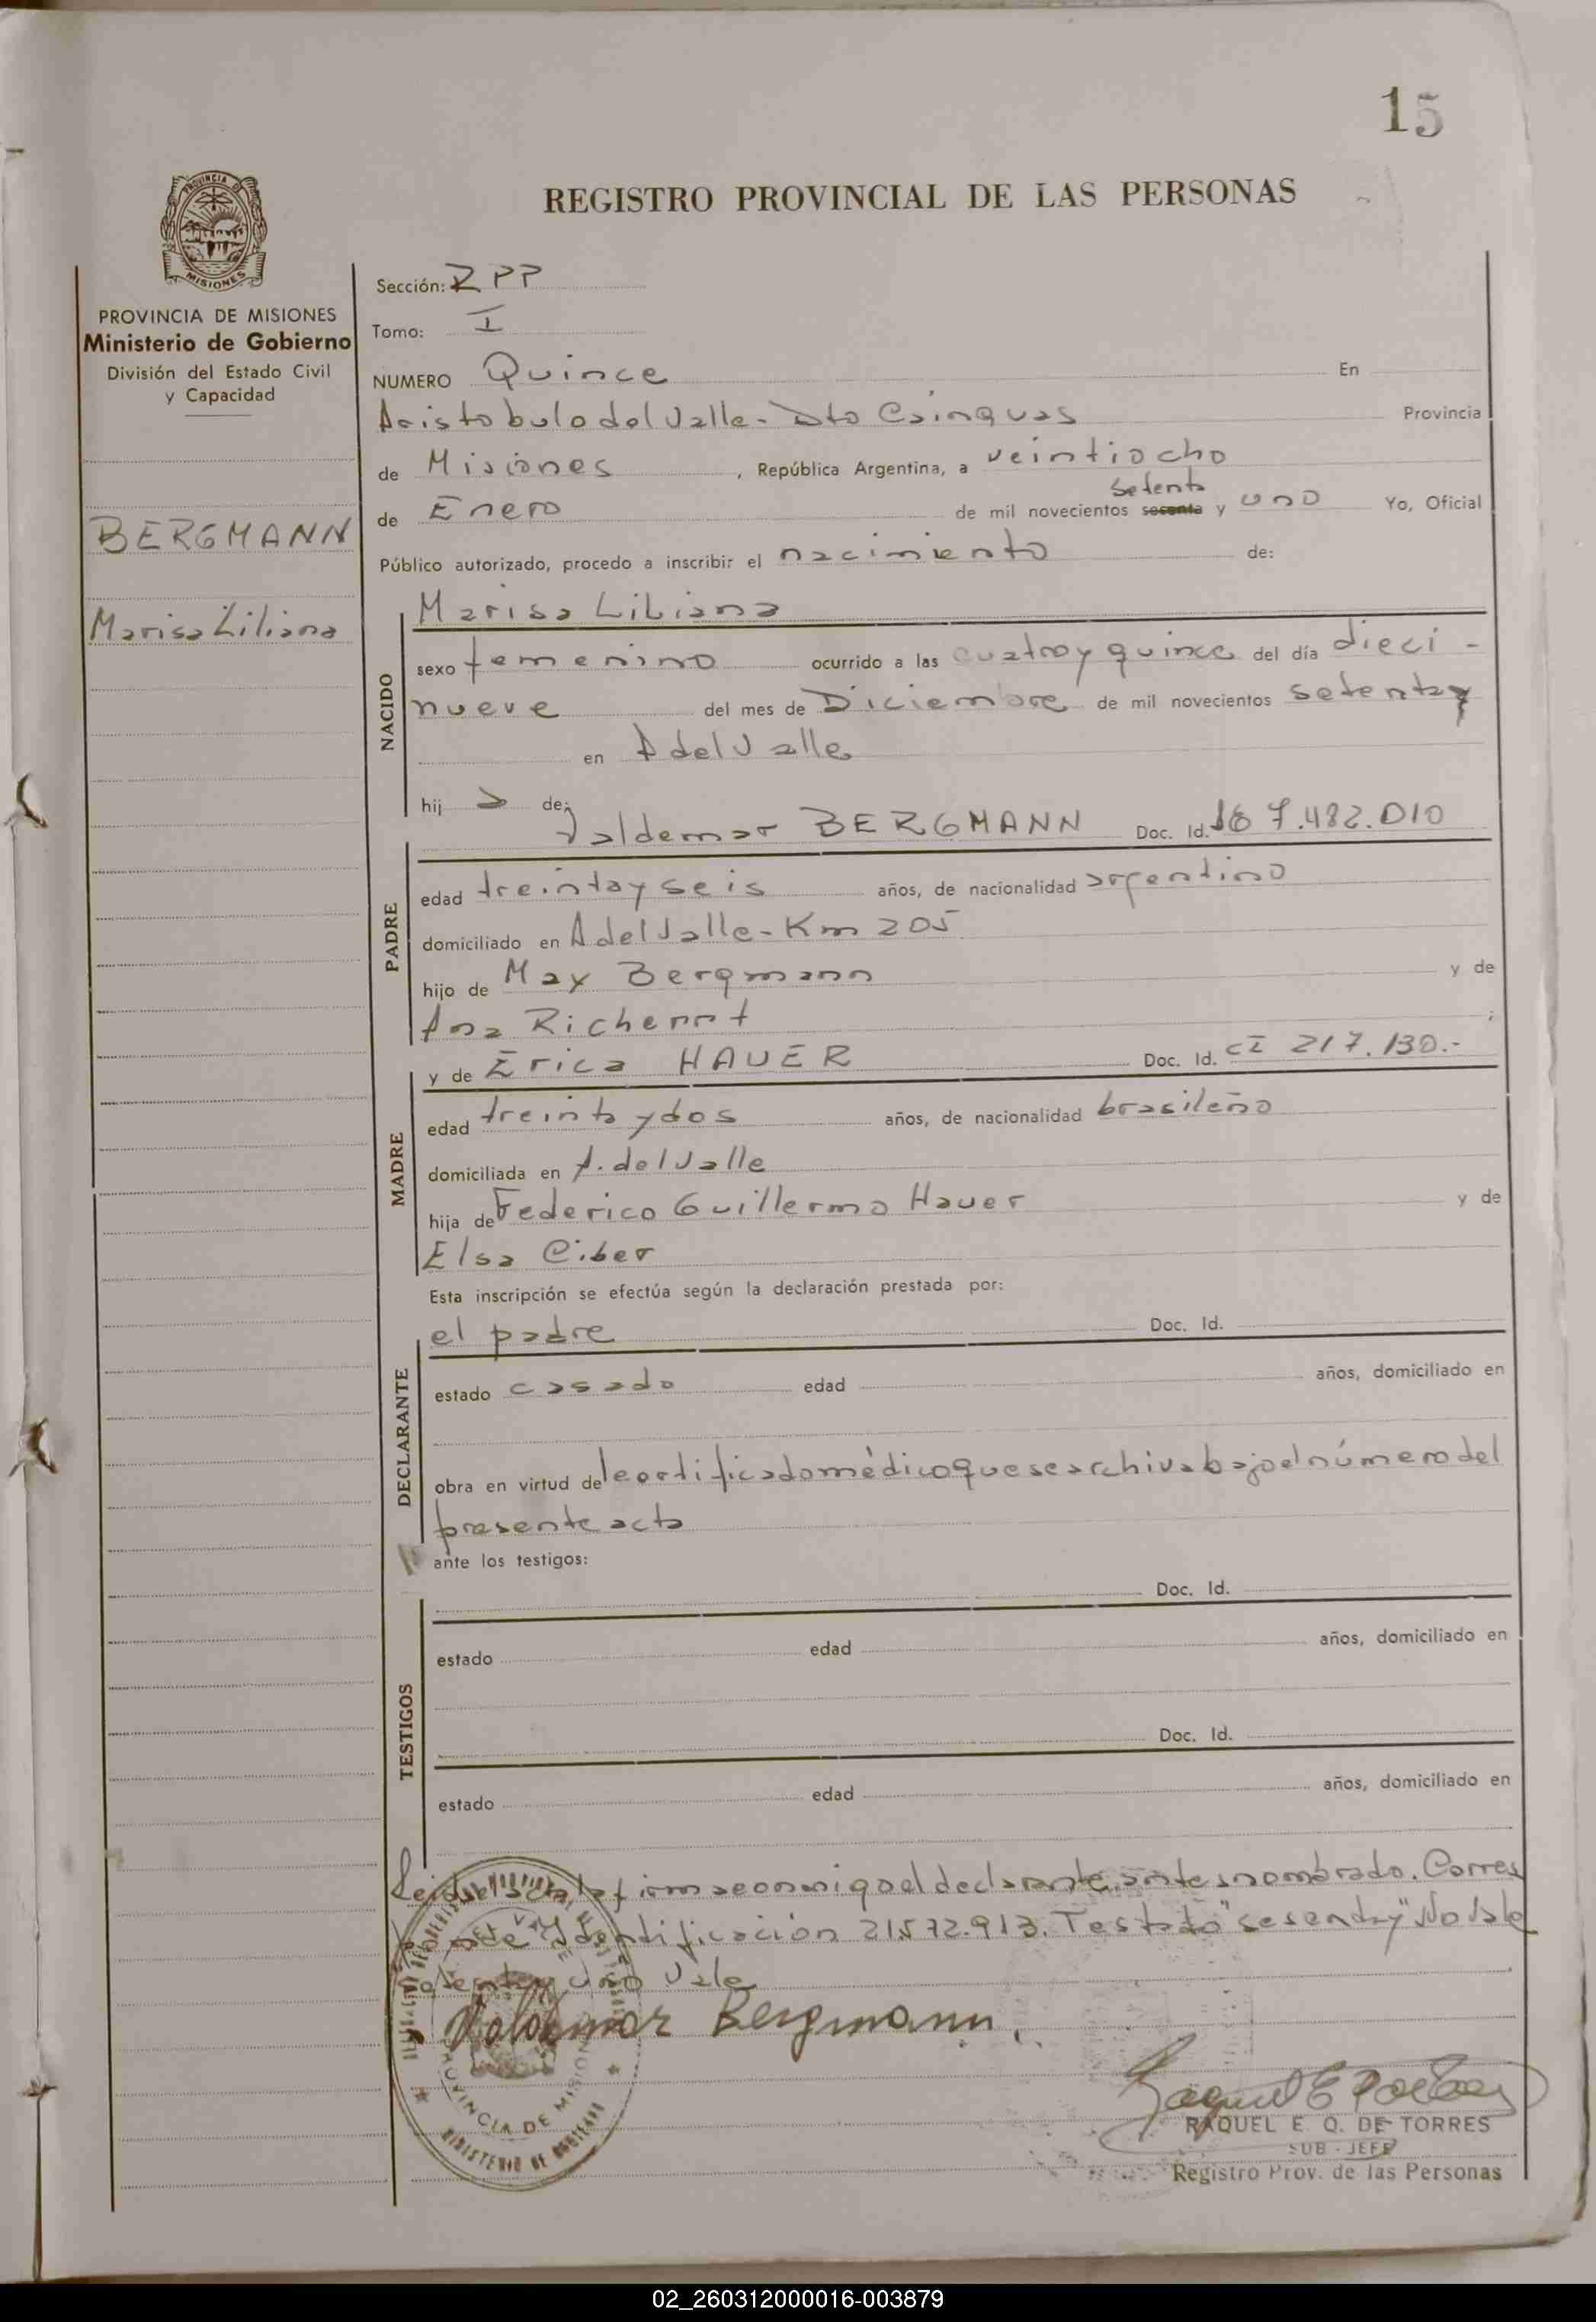 15
PROVINCIA DE
MISIONES
REGISTRO PROVINCIAL DE LAS PERSONAS
PROVINCIA DE MISIONES
Ministerio de Gobierno
División del Estado Civil
y Capacidad
BERGMANN
Marisa Liliana
Sección: RPP
Tomo: I
NUMERO Quince En
Aristobulo del Valle - Dto Cainguas Provincia
de Misiones, República Argentina, a veintiocho
setenta
de Enero de mil novecientos sesenta y uno Yo, Oficial
Público autorizado, procedo a inscribir el nacimiento de:
NACIDO
Marisa Liliana
sexo femenino ocurrido a las cuatro y quince del día dieci-
nueve del mes de Diciembre de mil novecientos setenta y
en A del Valle
hij a de:
PADRE
Valdemar BERGMANN Doc. Id. 7.482.010
edad treinta y seis años, de nacionalidad argentino
domiciliado en A del Valle - Km 205
hijo de Max Bergmann y de
Ana Richernt;
MADRE
y de Erica HAUER Doc. Id. CI 217.130.-
edad treinta y dos años, de nacionalidad brasileño
domiciliada en A. del Valle
hija de Federico Guillermo Hauer y de
Elsa Ciber
Esta inscripción se efectúa según la declaración prestada por:
DECLARANTE
el padre Doc. Id.
estado casado edad años, domiciliado en
obra en virtud del certificado médico que se archiva bajo el número del
presente acta
ante los testigos:
TESTIGOS
Doc. Id.
estado edad años, domiciliado en
Doc. Id.
estado edad años, domiciliado en
Leida el acta la firma conmigo el declarante antes nombrado. Corres
ponde Identificación 21.572.913. Testado "sesenta y" No Vale
setenta y uno Vale
Valdemar Bergmann.
PROVINCIA DE MISIONES
MINISTERIO DE GOBIERNO
RAQUEL E. Q. DE TORRES
SUB - JEFE
Registro Prov. de las Personas
02_260312000016-003879